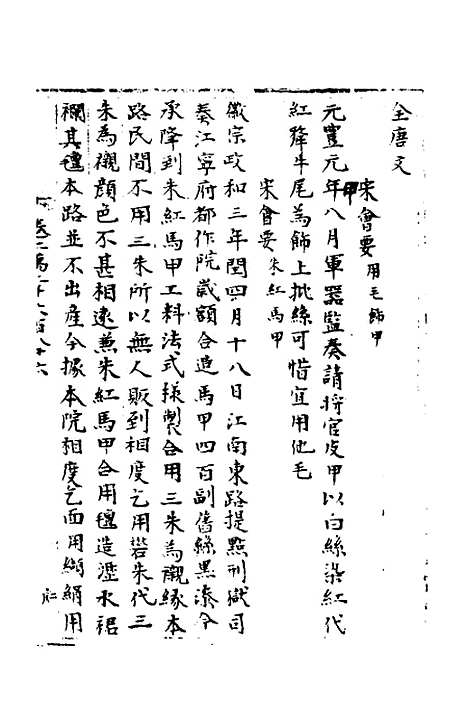 全唐文
宋會要 用毛飾甲
元豐元年八月軍器監奏請將官皮甲以白絲染紅代
紅犛牛尾為飾上批絲可惜宜用他毛
宋會要 朱紅馬甲
徽宗政和三年閏四月十八日江南東路提點刑獄司
奏江寧府都作院歲額合造馬甲四百副舊絲黑漆今
承降到朱紅馬甲工料法式樣製合用三朱為襯緣本
路民間不用三朱所以無人販到相度乞用礬朱代三
朱為襯顏色不甚相遠兼朱紅馬甲合用氊造瀝水裙
襴其氊本路並不出產今據本院相度乞面用絹用